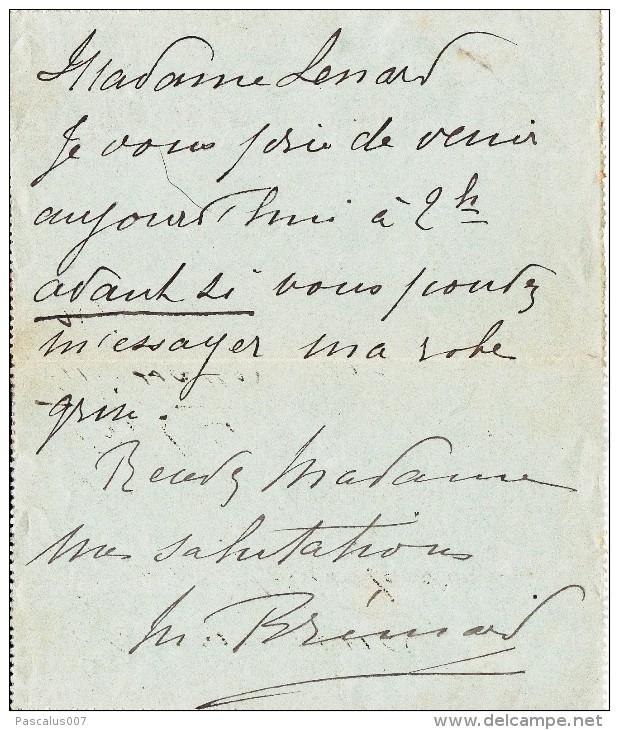 Madame Lenard
Je vous prie de venir
aujourd'hui à 2h
avant si vous pouvez
m'essayer ma robe
grise.
Recevez Madame
mes salutations
M. Brémard
Pascalus007
www.delcampe.net